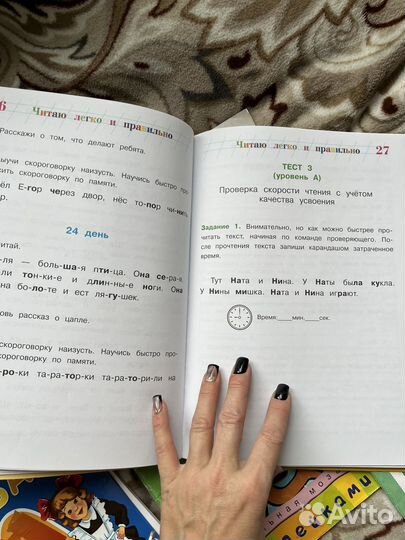 6
Читаю легко и правильно
Расскажи о том, что делают ребята.
скороговорку наизусть. Научись быстро про-
скороговорку по памяти.
Е-гор через двор, нёс то-пор чи-нить
24 день
— боль-ша-я пти-ца. Она се-ра-я.
тон-ки-е и длин-ны-е ноги. Она
бо-ло-те и ест ля-гу-шек.
рассказ о цапле.
скороговорку наизусть. Научись быстро про-
скороговорку по памяти.
та-ра-тор-ки та-ра-то-ри-ли на
Читаю легко и правильно 27
ТЕСТ 3
(уровень А)
Проверка скорости чтения с учётом
качества усвоения
Задание 1. Внимательно, но как можно быстрее про-
читать текст, начиная по команде проверяющего. По-
сле прочтения текста запиши карандашом затраченное
время.
Тут Ната и Нина. У Наты была кукла.
У Нины мишка. Ната и Нина играют.
Время:____мин.____сек.
Avito